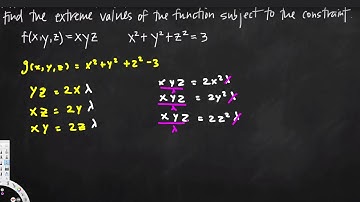 find the extreme values of the function subject to the constraint
f(x,y,z) = xyz x² + y² + z² = 3
g(x,y,z) = x² + y² + z² - 3
yz = 2x λ xyz/λ = 2x² λ
xz = 2y λ xyz/λ = 2y² λ
xy = 2z λ xyz/λ = 2z² λ